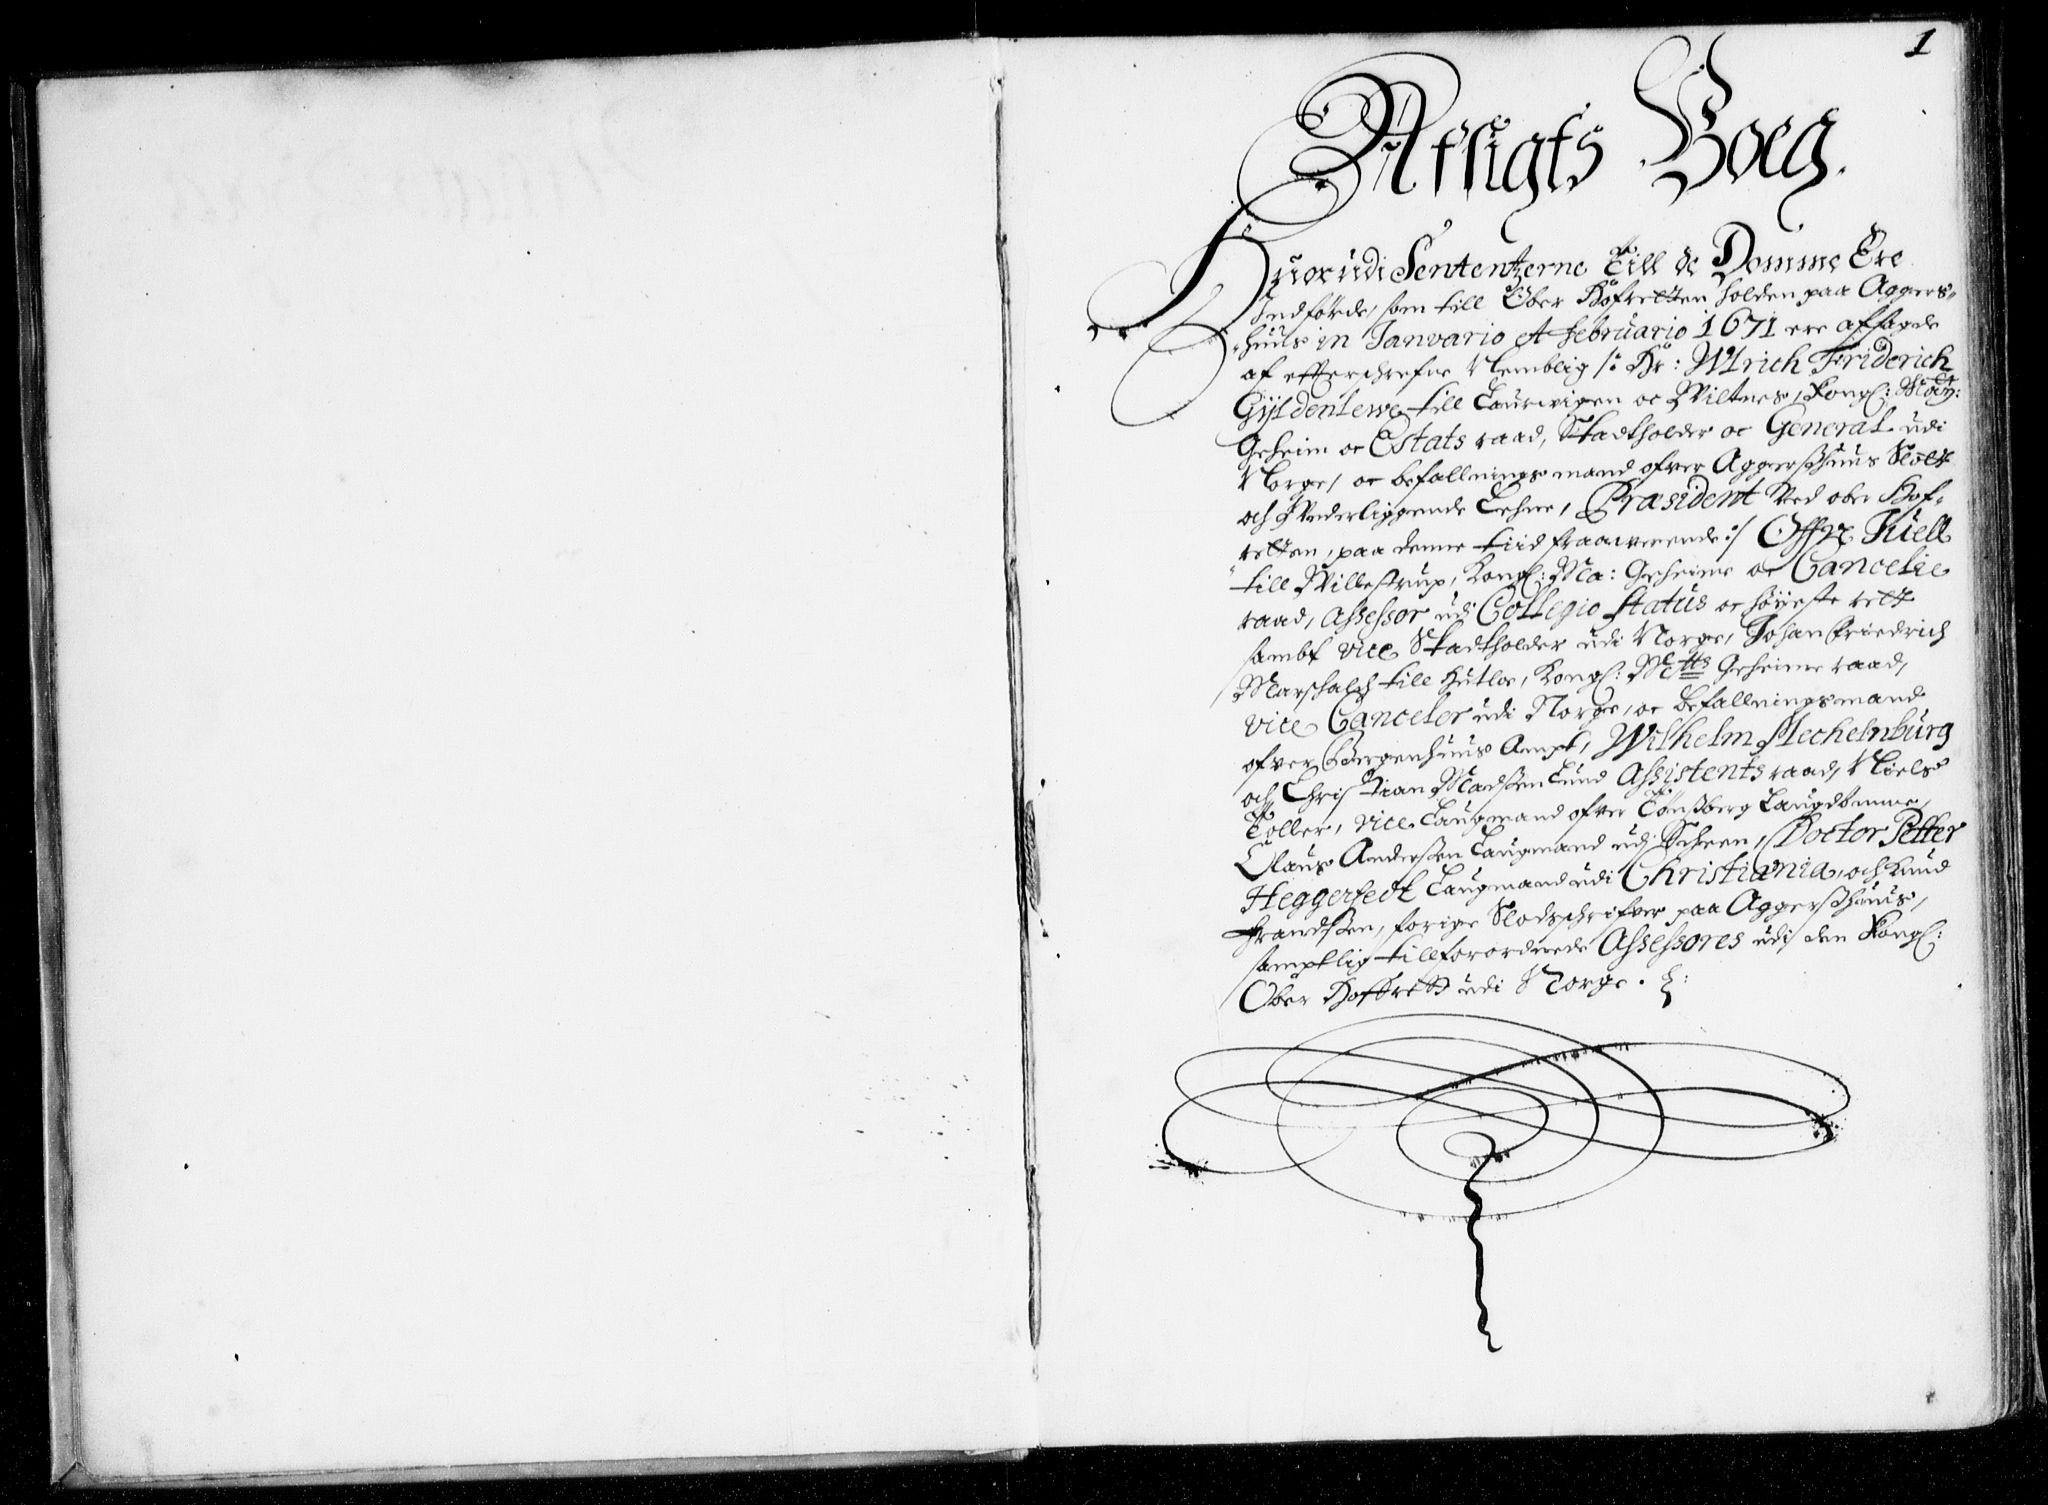 1
Afsigts Boeg.
Huorudi Sententzerne till de Domme Ere
Indførde, som till Ober Hofretten holden paa Aggers„
„huus in Januario et Februario 1671 ere afsagde
af effterschrefne Nemblig /: Hr: Ulrich Friderich
Gyldenlewe till Laurwigen oc Wiltnes, Kongl: Maÿt:
Geheim oc Estats raad, Stadtholder oc General udi
Norge, oc befallningsmand ofver Aggershuus Slott
och Underliggende Lehne, Præsident Ved ober Hof„
retten, paa denne tiid fraawerende :/ Offve Juell
till Willestrup, Kongl: Ma: Geheime oc Cancelie
raad, Assessor udi Collegio Status oc høyeste rett
sambt vice Stadtholder udi Norge, Johan Friedrich
Marschalch till Hutloe, Kongl: Metts Geheime raad,
vice Canceler udi Norge, oc befallningsmand
ofver Bergenhuus Ampt, Wilhelm Mechelnburg
och Christian Madssen Lund Assistents raad, Niels
Toller, vice Laugmand ofver Tønssberg Laugdømme,
Claus Anderssen Laugmand udj Scheen, Doctor Petter
Heggerfedt Laugmand udi Christiania, och Knud
Frandssen, forige Slodsschrifver paa Aggersshuus,
samptlig tillforordnede Assessores udi den Kongl:
Ober Hoffrett udi Norge.